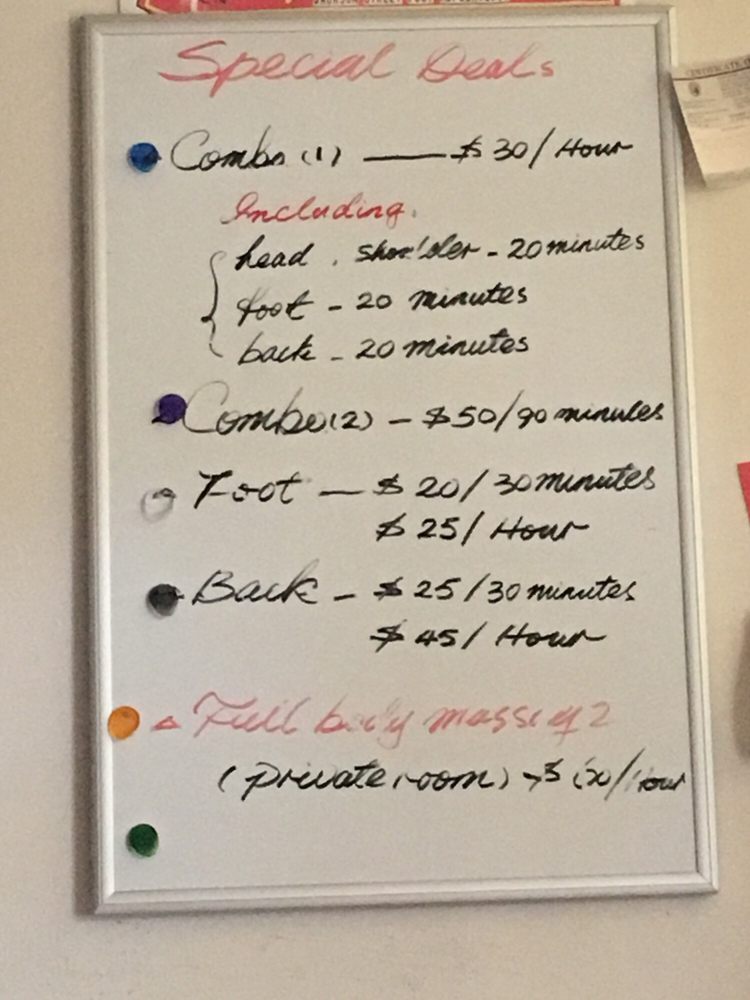 Special Deals
Combo (1) — $30/Hour
Including.
head . shoulder - 20 minutes
foot - 20 minutes
back - 20 minutes
Combo (2) - $50/90 minutes
Foot — $20/30 minutes
$25/Hour
Back - $25/30 minutes
$45/Hour
Full body
(private room) - $ /Hour